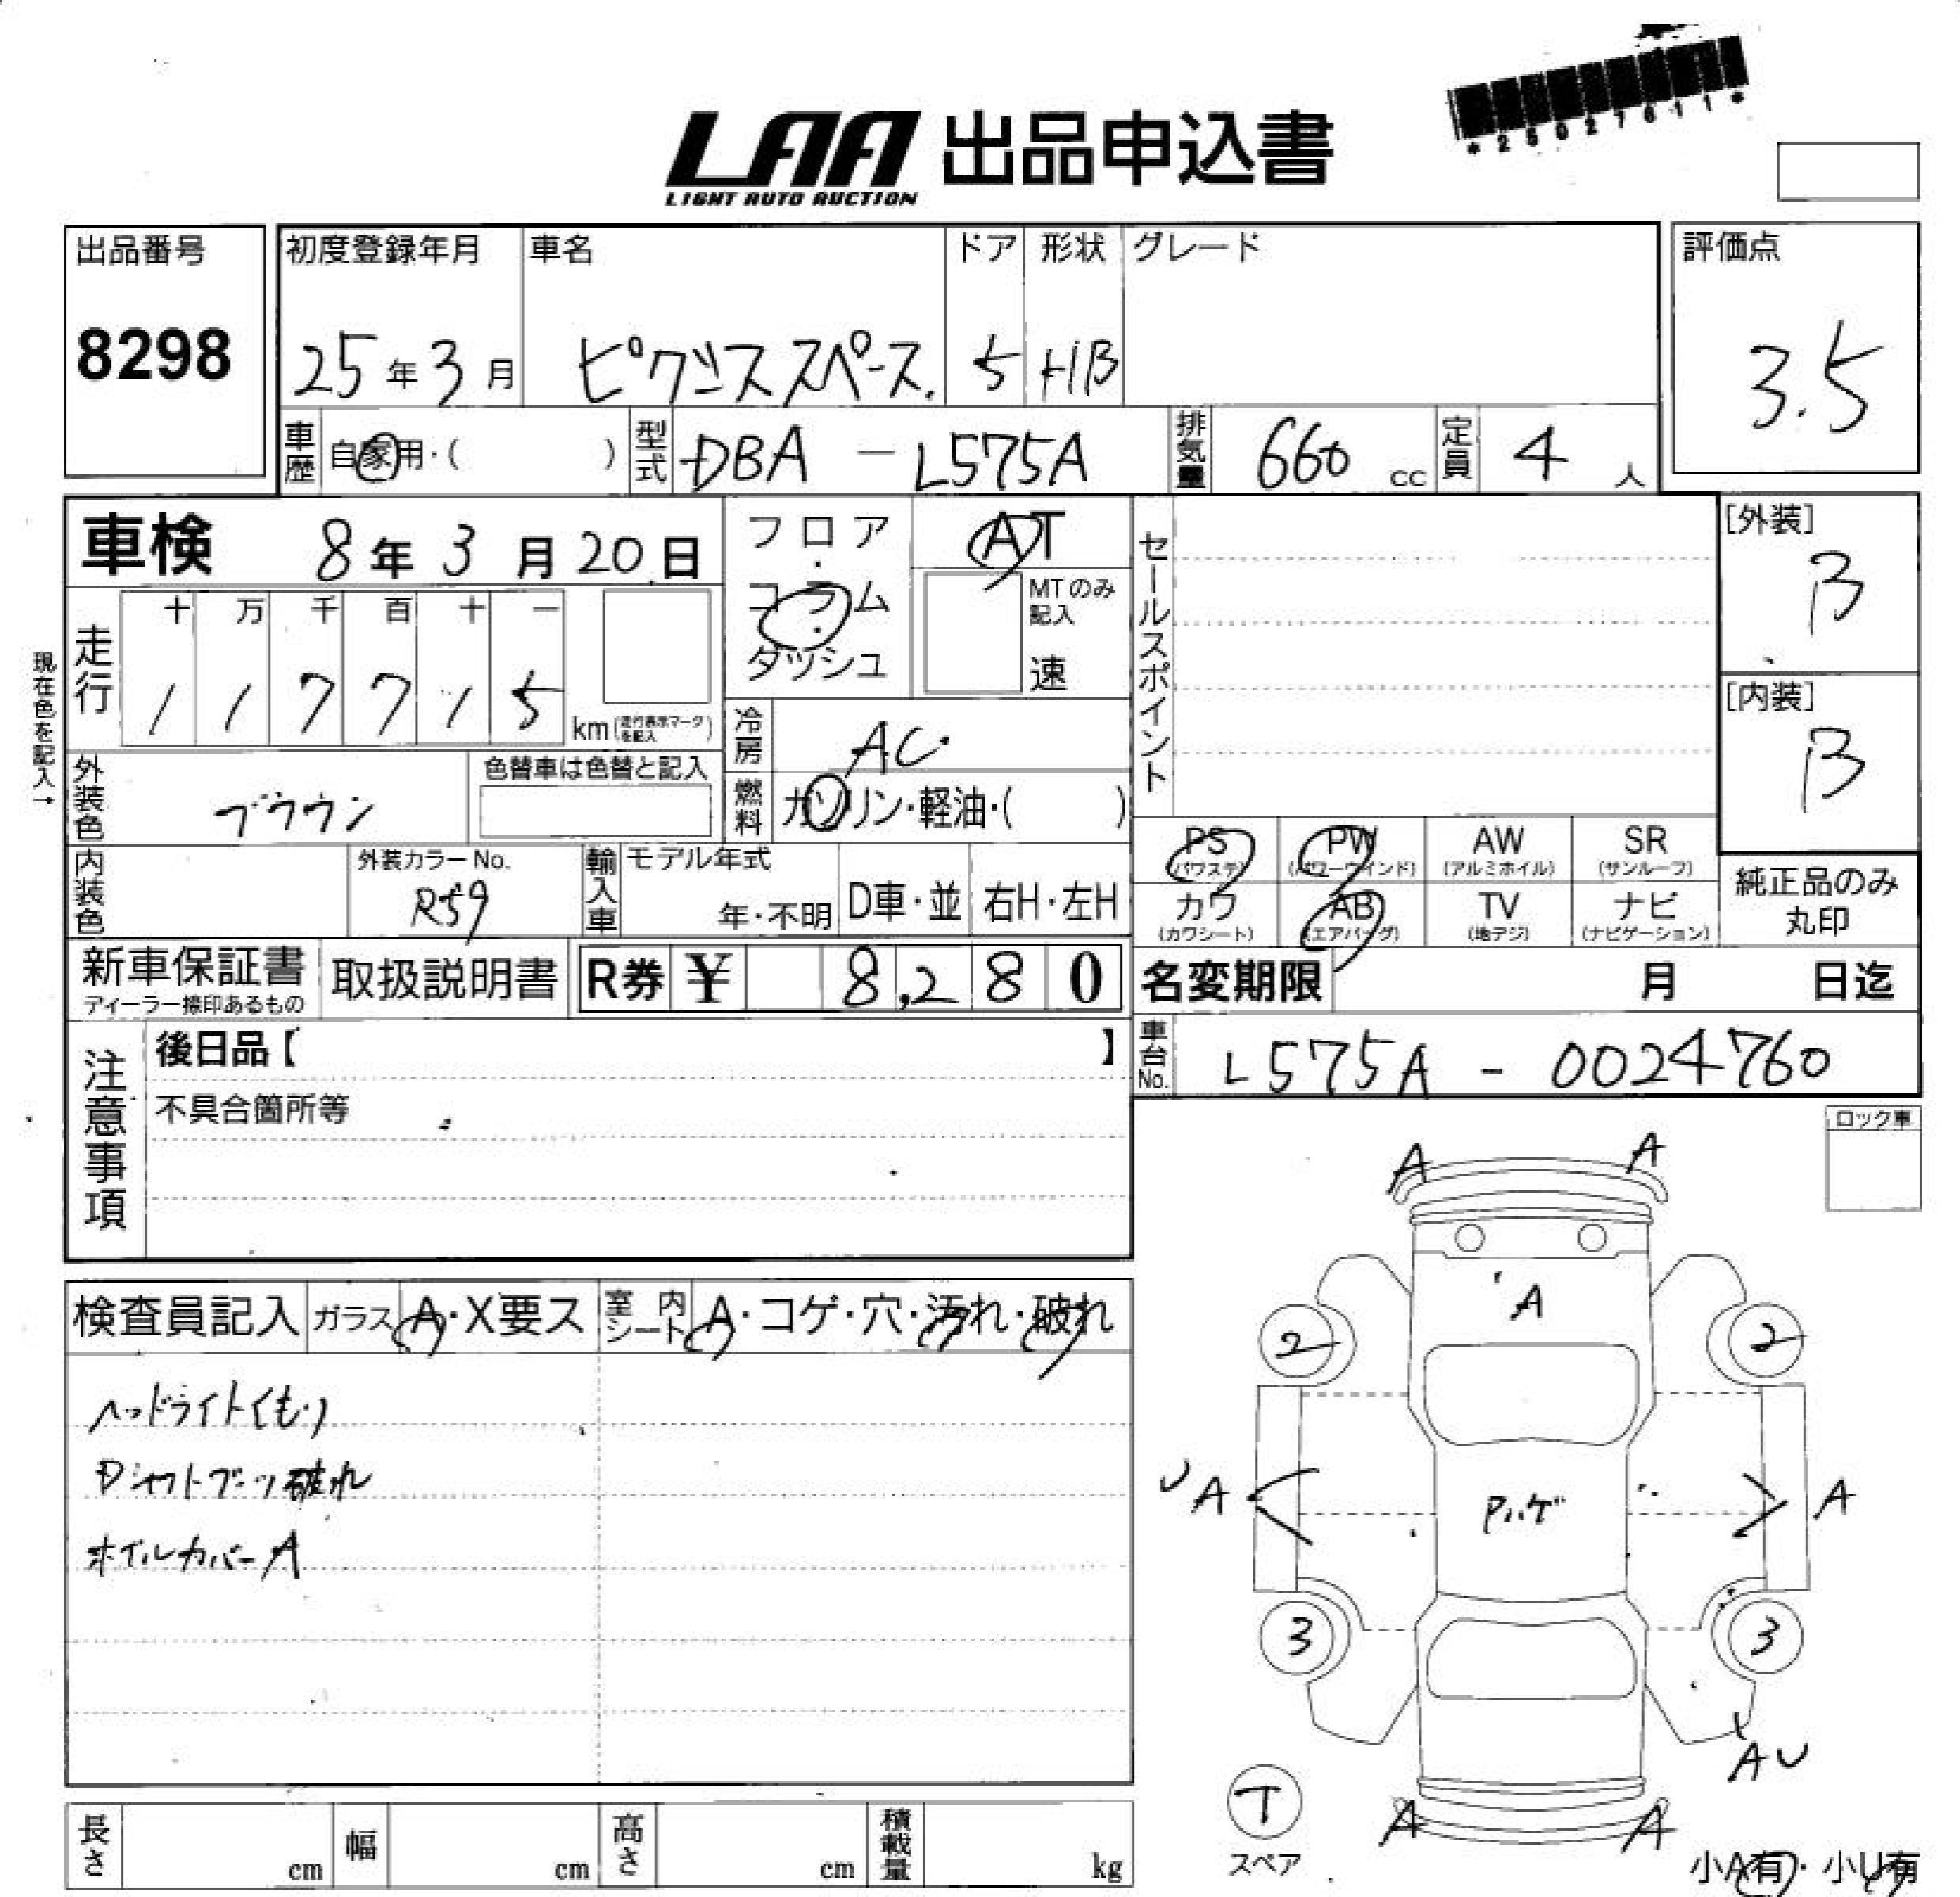 *25027611*
LAA 出品申込書
LIGHT AUTO AUCTION
出品番号 初度登録年月 車名 ドア 形状 グレード 評価点
8298 25年3月 ピクシススペース. 5 HB 3.5
車歴 自家用・( ) 型式 DBA - L575A 排気量 660 cc 定員 4 人
車検 8年3月20日
フロア・コラム・ダッシュ
AT
MTのみ記入
速
セールスポイント
[外装]
B
[内装]
B
現在色を記入→
走行 十 万 千 百 十 一
1 1 7 7 1 5 km (走行表示マークを記入)
冷房 AC
外装色 ブラウン 色替車は色替と記入
燃料 ガソリン・軽油・( )
PS PW AW SR
(パワステ) (パワーウインド) (アルミホイル) (サンルーフ)
カワ AB TV ナビ
(カワシート) (エアバッグ) (地デジ) (ナビゲーション)
純正品のみ
丸印
内装色 外装カラーNo. R59 輸入車 モデル年式 年・不明 D車・並 右H・左H
新車保証書 取扱説明書 R券 ¥ 8,280 名変期限 月 日迄
ディーラー捺印あるもの
車台No. L575A - 0024760
注意事項
後日品【 】
不具合箇所等
ロック車
検査員記入 ガラス A・X要ス 室内シート A・コゲ・穴・汚れ・破れ
ヘッドライトくもり
Dシャフトブーツ破れ
ホイルカバーA
A A
A
2 2
UA A
Pハゲ
3 3
AU
T
スペア
A A
小A有・小U有
長さ cm 幅 cm 高さ cm 積載量 kg